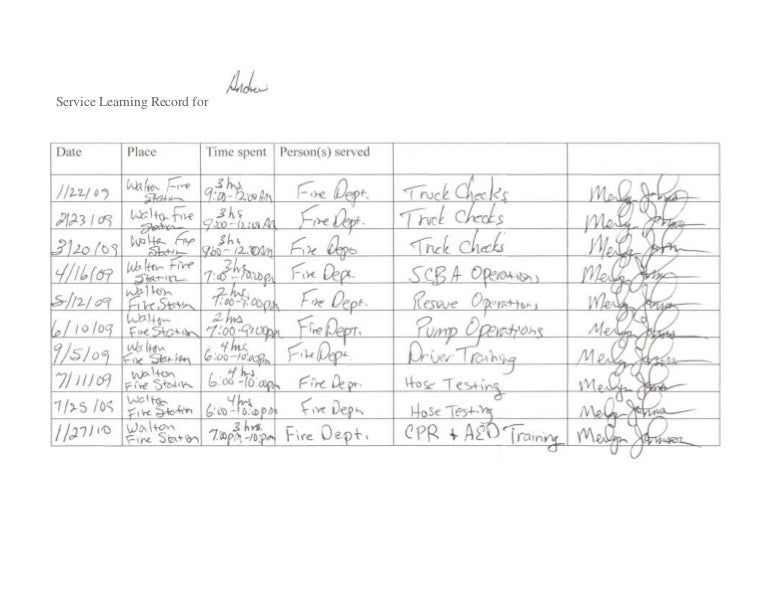 Andrew
Service Learning Record for
Date Place Time spent Person(s) served
1/22/09 Walton Fire Station 3 hrs 9:00-12:00 Am Fire Dept. Truck Checks
2/23/09 Walton Fire Station 3 hrs 9:00-12:00 Am Fire Dept. Truck Checks
3/20/09 Walton Fire Station 3 hrs 9:00-12:00 Am Fire Dept Truck Checks
4/16/09 Walton Fire Station 3 hrs 7:00-10:00pm Fire Dept. SCBA Operations
5/12/09 Walton Fire Station 2 hrs 7:00-9:00pm Fire Dept. Rescue Operations
6/10/09 Walton Fire Station 2 hrs 7:00-9:00pm Fire Dept. Pump Operations
9/5/09 Walton Fire Station 4 hrs 6:00-10:00pm Fire Dept. Driver Training
7/11/09 Walton Fire Station 4 hrs 6:00-10:00pm Fire Dept. Hose Testing
7/25/09 Walton Fire Station 4 hrs 6:00-10:00pm Fire Dept Hose Testing
1/27/10 Walton Fire Station 3 hrs. 7:00pm-10:pm Fire Dept. CPR + AED Training